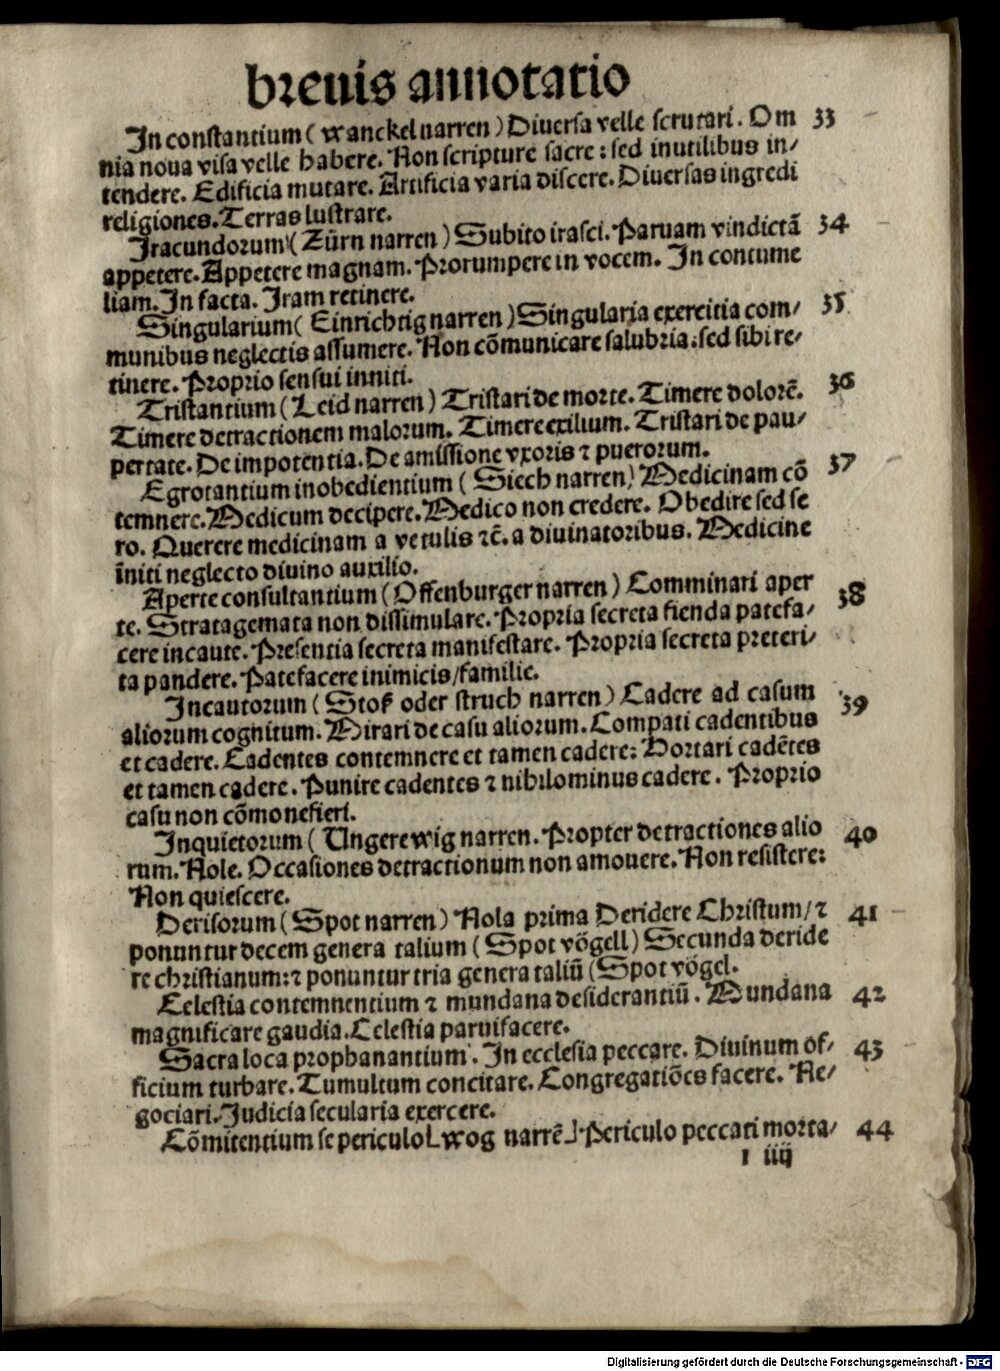 breuis annotatio
In constantium ( wanckel narren ) Diuersa velle scrutari. Om 33
nia noua visa velle habere. Non scripture sacre : sed inutilibus in/
tendere. Edificia mutare. Artificia varia discere. Diuersas ingredi
religiones. Terras lustrare.
Iracundorum ( Zürn narren ) Subito irasci. Paruam vindictā 34
appetere. Appetere magnam. Prorumpere in vocem. In contume
liam. In facta. Iram retinere.
Singularium ( Einrichtig narren ) Singularia exercitia com/ 35
munibus neglectis assumere. Non cōmunicare salubria : sed sibi re/
tinere. Proprio sensui inniti.
Tristantium ( Leid narren ) Tristari de morte. Timere dolorē. 36
Timere detractionem malorum. Timere exilium. Tristari de pau/
pertate. De impotentia. De amissione vxoris ⁊ puerorum.
Egrotantium inobedientium ( Siech narren ) Medicinam cō 37
temnere. Medicum decipere. Medico non credere. Obedire sed se
ro. Querere medicinam a vetulis ⁊c̄. a diuinatoribus. Medicine
īniti neglecto diuino auxilio.
Aperte consultantium ( Offenburger narren ) Comminari aper 38
te. Stratagemata non dissimulare. Propria secreta fienda patefa/
cere incaute. Presentia secreta manifestare. Propria secreta preteri/
ta pandere. Patefacere inimicis/familie.
Incautorum ( Stoß oder struch narren ) Cadere ad casum 39
aliorum cognitum. Mirari de casu aliorum. Compati cadentibus
et cadere. Cadentes contemnere et tamen cadere: Hortari cadētes
et tamen cadere. Punire cadentes ⁊ nihilominus cadere. Proprio
casu non cōmonefieri.
Inquietorum ( Ungerewig narren. Propter detractiones alio 40
rum. Nole. Occasiones detractionum non amouere. Non resistere:
Non quiescere.
Derisorum ( Spot narren ) Nola prima Deridere Christum/⁊ 41
ponuntur decem genera talium ( Spot vögell ) Secunda deride
re christianum:⁊ ponuntur tria genera taliū ( Spot vögel.
Celestia contemnentium ⁊ mundana desiderantiū. Mundana 42
magnificare gaudia. Celestia paruifacere.
Sacra loca prophanantium. In ecclesia peccare. Diuinum of/ 43
ficium turbare. Tumultum concitare. Congregatiōes facere. Ne/
gociari. Iudicia secularia exercere.
Cōmitentium se periculo [ wog narrē ] Periculo peccati morta/ 44
l iiij
Digitalisierung gefördert durch die Deutsche Forschungsgemeinschaft - DFG